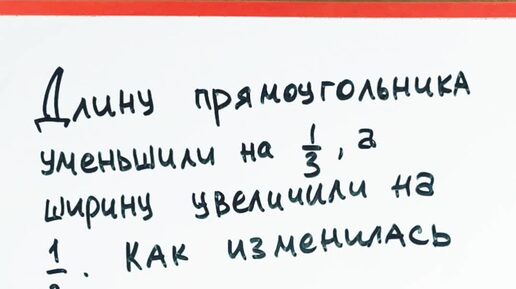 Длину прямоугольника
уменьшили на 1/3, а
ширину увеличили на
Как изменилась